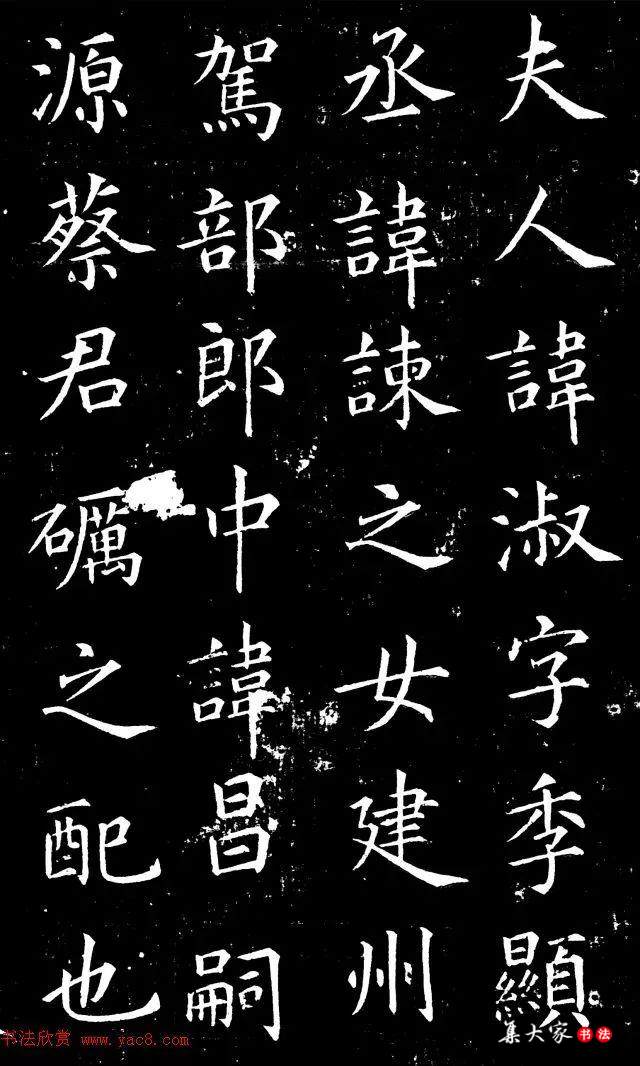 夫人諱淑字季顯
丞諱諫之女建州
駕部郎中諱昌嗣
源蔡君礪之配也
集大家 书法
书法欣赏 www.yac8.com